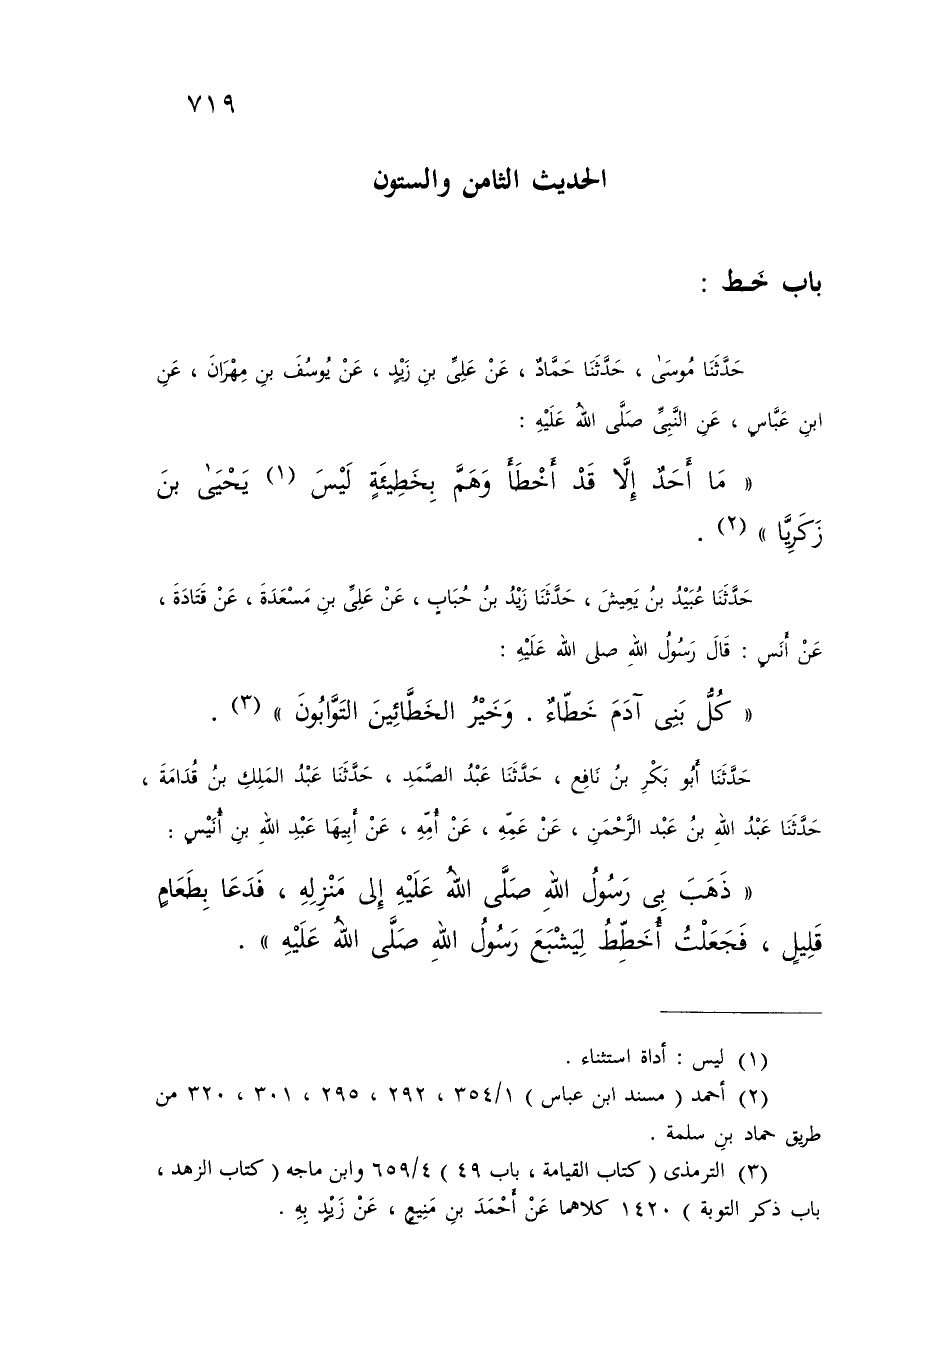 ٧١٩
الحديث الثامن والستون
باب خَـط :
حَدَّثَنَا مُوسَىٰ ، حَدَّثَنَا حَمَّادٌ ، عَنْ عَلِىِّ بنِ زَيْدٍ ، عَنْ يُوسُفَ بنِ مِهْرَانَ ، عَنِ
ابنِ عَبَّاسٍ ، عَنِ النَّبِىِّ صَلَّى اللهُ عَلَيْهِ :
« مَا أَحَدٌ إِلَّا قَدْ أَخْطَأَ وَهَمَّ بِخَطِيئَةٍ لَيْسَ (١) يَحْيَىٰ بنَ
زَكَرِيَّا » (٢) .
حَدَّثَنَا عُبَيْدُ بنُ يَعِيشَ ، حَدَّثَنَا زَيْدُ بنُ حُبَابٍ ، عَنْ عَلِىِّ بنِ مَسْعَدَةَ ، عَنْ قَتَادَةَ ،
عَنْ أَنَسٍ : قَالَ رَسُولُ اللهِ صلى الله عَلَيْهِ :
« كُلُّ بَنِى آدَمَ خَطَّاءٌ . وَخَيْرُ الخَطَّائِينَ التَوَّابُونَ » (٣) .
حَدَّثَنَا أَبُو بَكْرِ بنُ نَافِعٍ ، حَدَّثَنَا عَبْدُ الصَّمَدِ ، حَدَّثَنَا عَبْدُ المَلِكِ بنُ قُدَامَةَ ،
حَدَّثَنَا عَبْدُ اللهِ بنُ عَبْد الرَّحْمَنِ ، عَنْ عَمِّهِ ، عَنْ أُمِّهِ ، عَنْ أَبِيهَا عَبْدِ اللهِ بنِ أُنَيْسٍ :
« ذَهَبَ بِى رَسُولُ اللهِ صَلَّى اللهُ عَلَيْهِ إِلى مَنْزِلِهِ ، فَدَعَا بِطَعَامٍ
قَلِيلٍ ، فَجَعَلْتُ أُخَطِّطُ لِيَشْبَعَ رَسُولُ اللهِ صَلَّى اللهُ عَلَيْهِ » .
(١) ليس : أداة استثناء .
(٢) أحمد ( مسند ابن عباس ) ٣٥٤/١ ، ٢٩٢ ، ٢٩٥ ، ٣٠١ ، ٣٢٠ من
طريق حماد بنِ سلمة .
(٣) الترمذى ( كتاب القيامة ، باب ٤٩ ) ٦٥٩/٤ وابن ماجه ( كتاب الزهد ،
باب ذكر التوبة ) ١٤٢٠ كلاهما عَنْ أَحْمَدَ بنِ مَنِيعٍ ، عَنْ زَيْدٍ بِهِ .